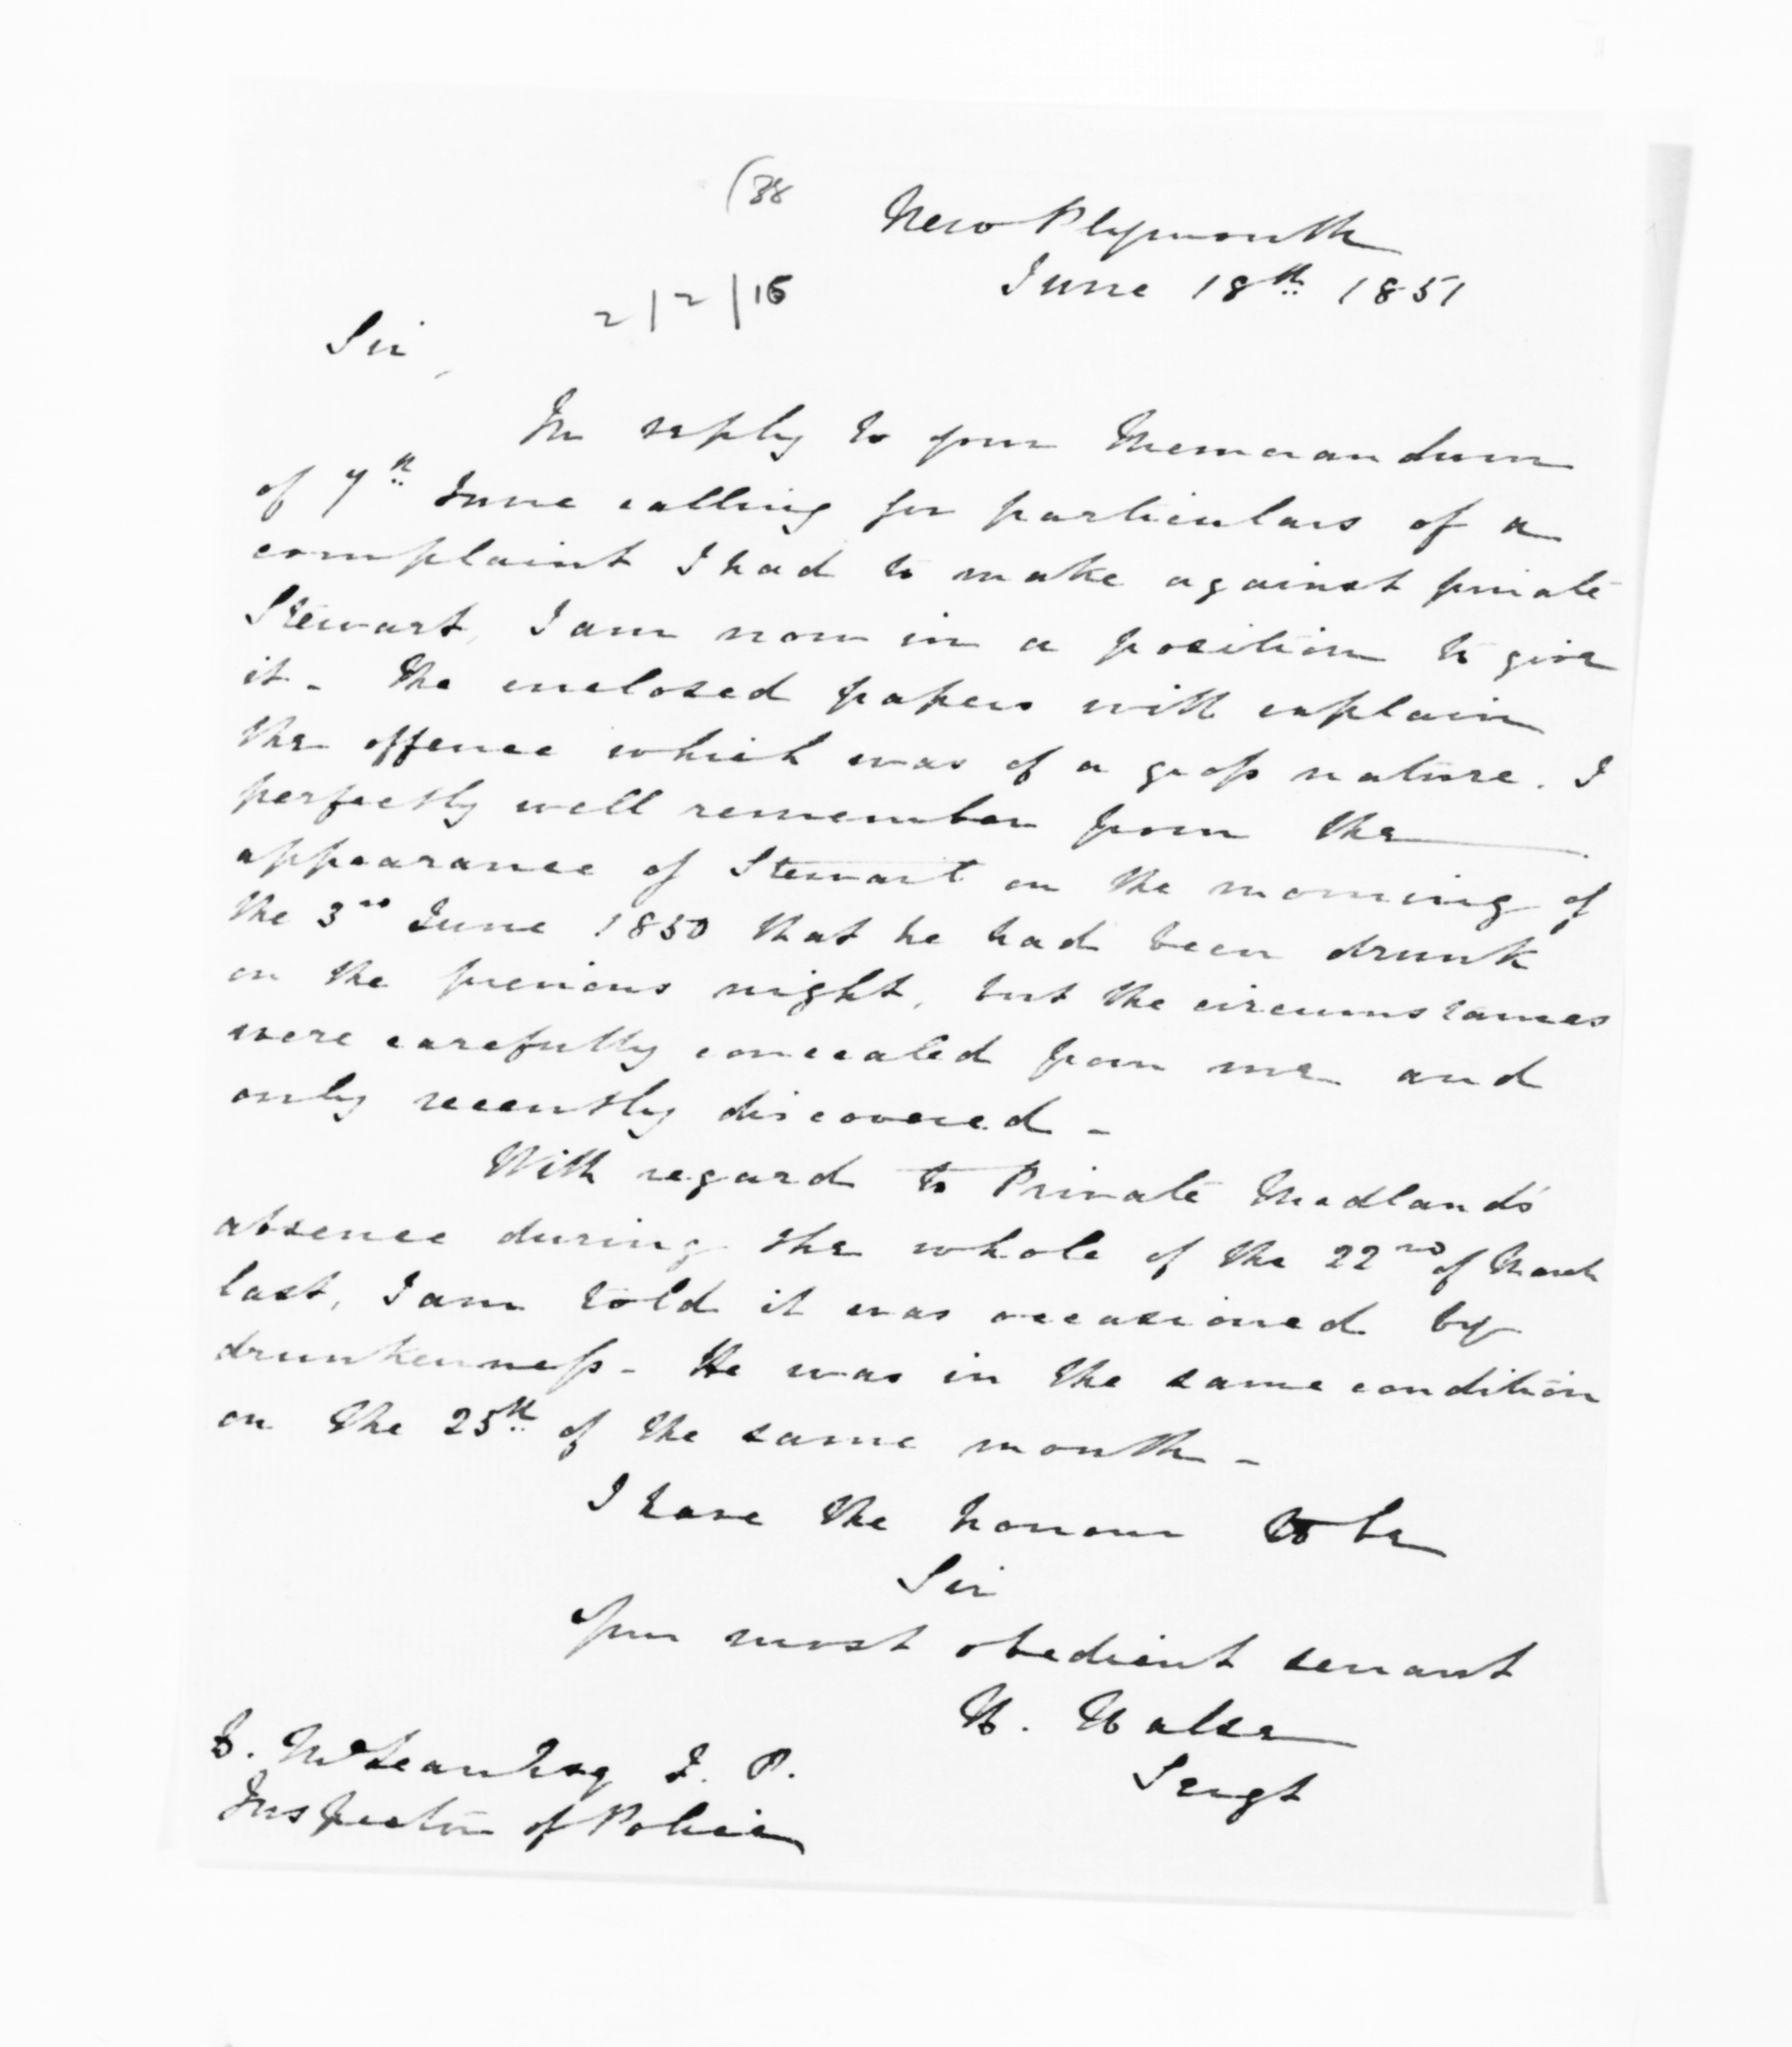 (38
New Plymouth
June 18th 1851
2/2/16
Sir,
In reply to your Memorandum
of 7th June calling for particulars of a
complaint I had to make against private
Stewart, I am now in a position to give
it - The enclosed papers will explain
the offence which was of a gross nature. I
perfectly well remember from the
appearance of Stewart on the morning of
the 3rd June 1850 that he had been drunk
on the previous night, but the circumstances
were carefully concealed from me and
only recently discovered -
With regard to Private Medland's
absence during the whole of the 22nd of March
last, I am told it was occasioned by
drunkenness - He was in the same condition
on the 25th of the same month -
I have the honour to be
Sir
Your most obedient servant
H. Halse
Sergt
D. McLean Esq J. P.
Inspector of Police